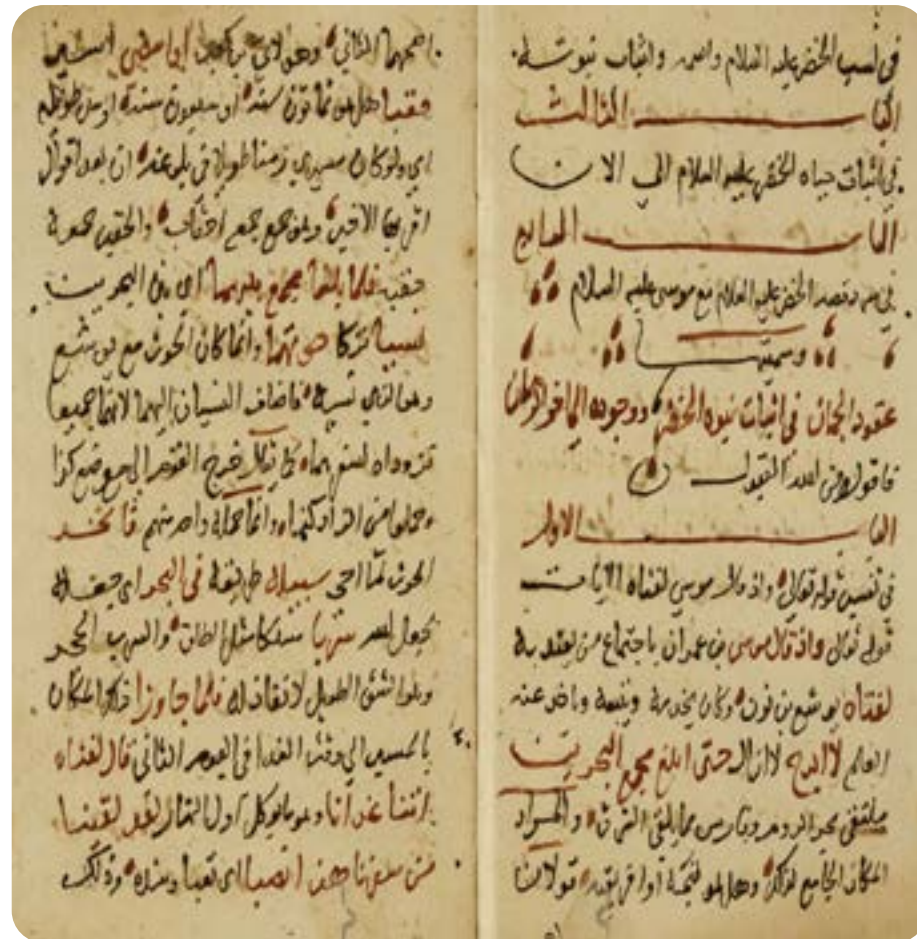 في نسب الخضر عليه السلام واسمه واثبات نبوته
الباب الثالث
في اثبات حياه الخضر عليه السلام الي الان
الباب الرابع
في قصه الخضر عليه السلام مع موسى عليه السلام
وسميتها
عقود الجمان في اثبات نبوه الخضر ووجوده الي اخر الزمان
فاقول ومن الله القبول
الباب الاول
في تفسير قوله تعالي واذ قال موسى لفتاه الايات
قوله تعالي واذ قال موسى بن عمران باجتماع من يعتد به
لفتاه يوشع بن نون وكان يخدمه ويتبعه وياخذ عنه
العلم لا ابرح لا ازال حتى ابلغ مجمع البحرين
ملتقى بحر الروم وفارس مما يلي الشرق والمراد
المكان الجامع لذلك وهل هو افريقيه قولان
اصحهما الثاني وهو لابي بن كعب او امضي
حقبا هل هو ثمانون سنة او سبعون سنة او
اي ولو كان سيري زمنا طويلا في بلوغه ان بعد اقوال
اقربها الاخير ويجمع جمع احقاب والحقب جمعه
حقبة فلما بلغا مجمع بينهما اي بين البحرين
نسيا تركا حوتهما وانما كان الحوت مع يوشع
وهو الذي نسيه فاضاف النسيان اليهما لانهما جميعا
تزوداه لسفرهما كما يقال خرج القوم الي موضع كذا
وحملوا من الزاد كذا وانما حمله واحد منهم فاتخذ
الحوت لما احيي سبيله طريقه في البحر اي جعله
بجعل الله سربا مثل الطاق والسرب الحجر
وهو الشق الطويل لا نفاذ له فلما جاوزا ذلك المكان
بالمسير الي وقت الغدا في اليوم الثاني قال لفتاه
اتنا غدانا وهو ما يوكل اول النهار لقد لقينا
من سفرنا هذا نصبا اي تعبا وشدة وذلك